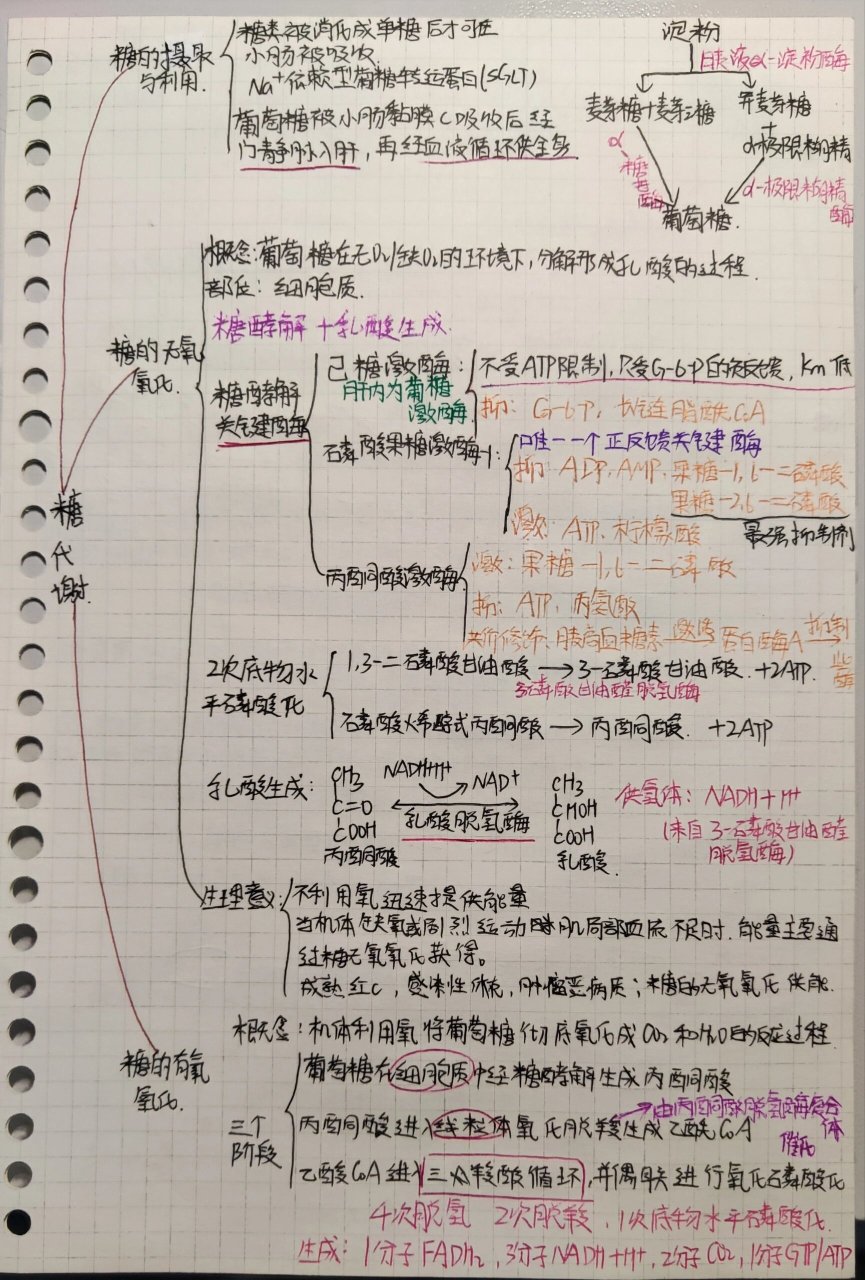 糖代谢
糖的摄取
与利用.
糖类被消化成单糖后才可在
小肠被吸收
Na⁺依赖型葡糖转运蛋白(SGLT)
葡萄糖被小肠黏膜C吸收后经
门静脉入肝,再经血液循环供全身.
淀粉
胰液α-淀粉酶
麦芽糖+麦芽三糖
异麦芽糖
+
α-极限糊精
α-糖苷酶
α-极限糊精酶
葡萄糖.
糖的无氧
氧化.
概念:葡萄糖在无O₂/缺O₂的环境下,分解形成乳酸的过程.
部位:细胞质.
糖酵解+乳酸生成.
糖酵解
关键酶
己糖激酶:
肝内为葡糖
激酶
不受ATP限制,只受G-6-P的负反馈,Km低
抑:G-6-P、长链脂酰CoA
石磷酸果糖激酶-1:
唯一一个正反馈关键酶
抑:ADP、AMP、果糖-1,6-二磷酸
果糖-2,6-二磷酸
最强抑制剂
激:ATP、柠檬酸
丙酮酸激酶
激:果糖-1,6-二磷酸
抑:ATP、丙氨酸
共价修饰:胰高血糖素 激活→ 蛋白酶A 抑制→ 此酶
2次底物水
平磷酸化
1,3-二磷酸甘油酸→3-磷酸甘油酸.+2ATP.
3-磷酸甘油醛脱氢酶
磷酸烯醇式丙酮酸→丙酮酸. +2ATP
乳酸生成:
CH3
C=O
COOH
丙酮酸
NADH+H⁺
NAD⁺
乳酸脱氢酶
CH3
CHOH
COOH
乳酸.
供氢体:NADH+H⁺
(来自3-磷酸甘油醛
脱氢酶)
生理意义:
不利用氧迅速提供能量
当机体缺氧或剧烈运动时肌局部血流不足时.能量主要通
过糖无氧氧化获得。
成熟红C,感染性休克,肿瘤恶病质;糖的无氧氧化供能.
糖的有氧
氧化.
概念:机体利用氧将葡萄糖彻底氧化成CO₂和H₂O的反应过程.
三个
阶段
葡萄糖在细胞质中经糖酵解生成丙酮酸
丙酮酸进入线粒体氧化脱羧生成乙酰CoA
由丙酮酸脱氢酶复合体
催化
乙酸CoA进入三羧酸循环,并偶联进行氧化磷酸化
4次脱氢 2次脱羧、1次底物水平磷酸化.
生成:1分子FADH₂,3分子NADH+H⁺,2分子CO₂,1分子GTP/ATP